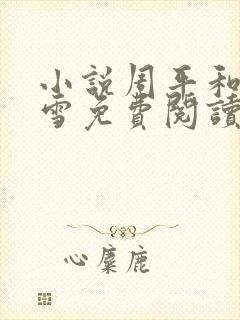 小說周平和
雪免費閱讀
心麋鹿